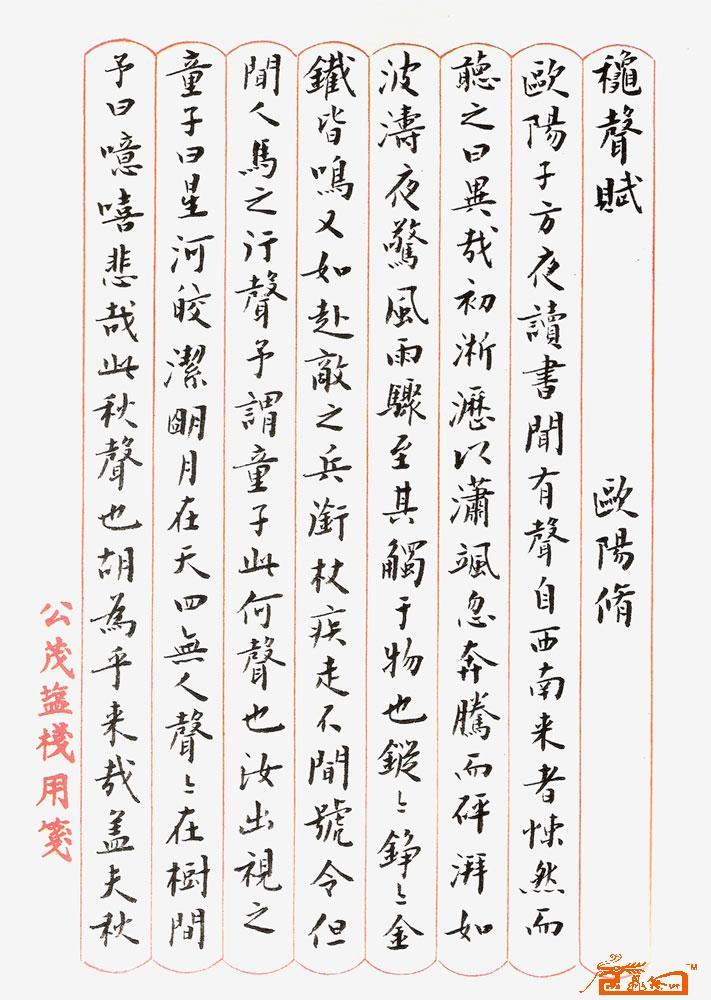 龝聲賦 歐陽脩
歐陽子方夜讀書聞有聲自西南来者悚然而
聽之曰異哉初淅瀝以瀟颯忽奔騰而砰湃如
波濤夜驚風雨驟至其觸于物也鏦〻錚〻金
鐵皆鳴又如赴敵之兵銜枚疾走不聞號令但
聞人馬之行聲予謂童子此何聲也汝出視之
童子曰星河皎潔明月在天四無人聲〻在樹間
予曰噫嘻悲哉此秋聲也胡為乎来哉盖夫秋
公茂盐棧用箋